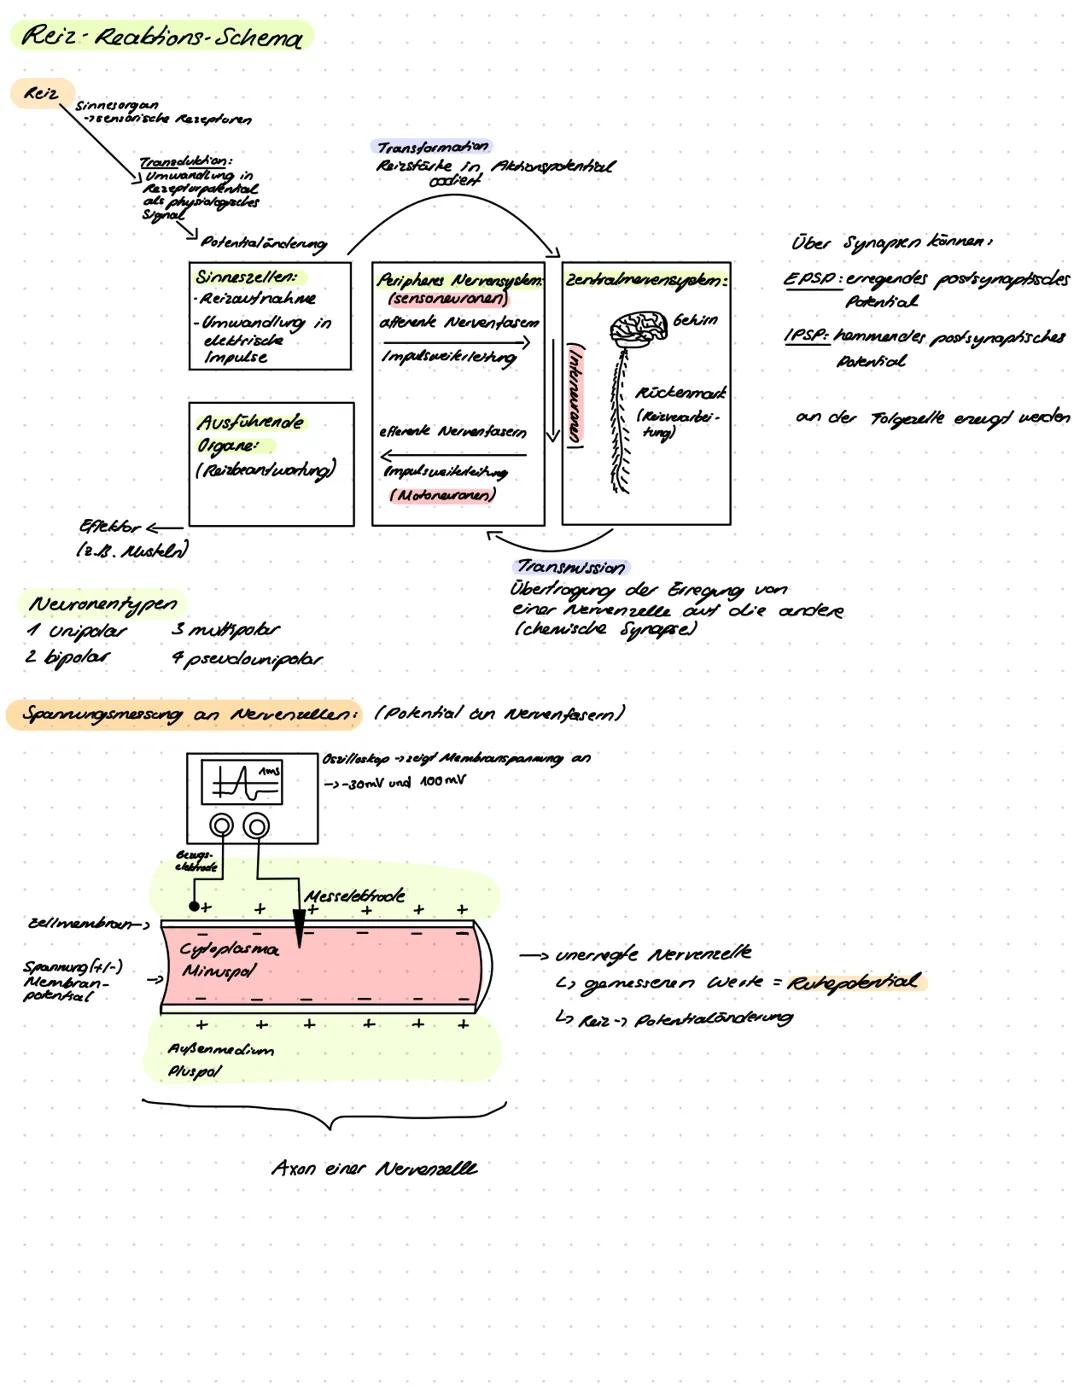 Reiz-Reaktions-Schema
Reiz
Sinnesorgan
->sensorische Rezeptoren
Transduktion:
Umwandlung in
Rezeptorpotential
als physiologisches
Signal
Potentialänderung
Transformation
Reizstärke in Aktionspotential
codiert
Sinneszellen:
- Reizaufnahme
- Umwandlung in
elektrische
Impulse
Ausführende
Organe:
(Reizbeantwortung)
Effektor
(z.B. Muskeln)
Peripheres Nervensystem:
(sensoneuronen)
afferente Nervenfasern
Impulsweiterleitung
efferente Nervenfasern
Impulsweiterleitung
(Motoneuronen)
(Interneuronen)
Zentralnervensystem:
Gehirn
Rückenmark
(Reizverarbei-
tung)
Transmission
Übertragung der Erregung von
einer Nervenzelle auf die andere
(chemische Synapse)
Über Synapsen können:
EPSP: erregendes postsynaptisches
Potential
IPSP: hemmendes postsynaptisches
Potential
an der Folgezelle erzeugt werden
Neuronentypen
1 unipolar 3 multipolar
2 bipolar 4 pseudounipolar
Spannungsmessung an Nervenzellen: (Potential an Nervenfasern)
1ms
Oszilloskop -> zeigt Membranspannung an
-> -30mV und 100mV
Bezugs-
elektrode
Messelektrode
+ + + + + +
Zellmembran->
- - - - - -
Cytoplasma
Minuspol
Spannung (+/-)
Membran-
potential
- - - - - -
+ + + + + +
Außenmedium
Pluspol
-> unerregte Nervenzelle
↳ gemessenen Werte = Ruhepotential
↳ Reiz -> Potentialänderung
Axon einer Nervenzelle